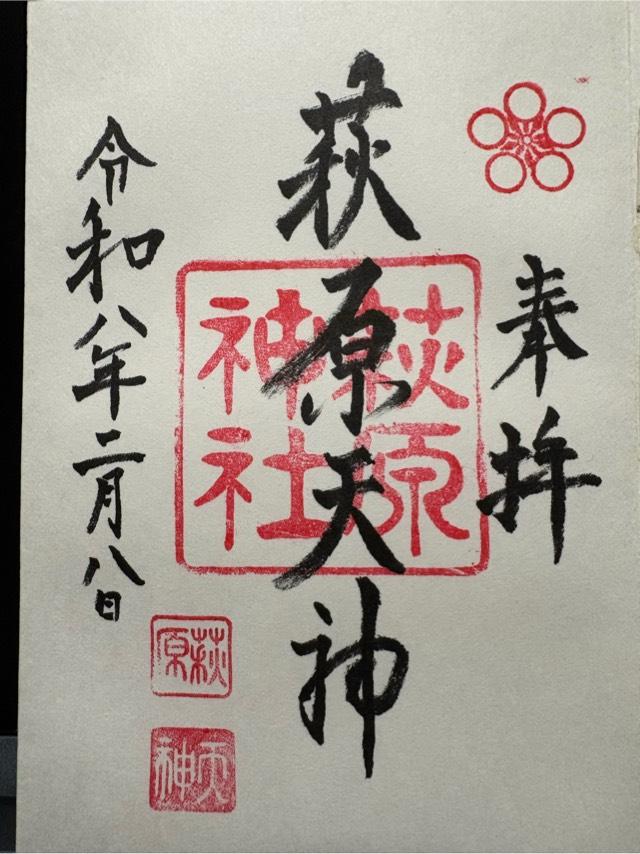 奉拝
萩原天神
萩原神社
令和八年二月八日
萩原
天神